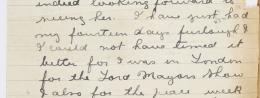 indeed looking forward to
seeing her. I have just had
my fourteen days furlough I
I could not have timed it
better for I was in London
for the Lord Mayors Show
I also for the peace week